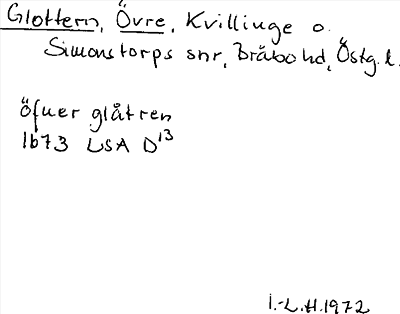 Glottern, Övre, Kvillinge o.
Simonstorps snr, Bråbo hd, Östg. l.
öfuer glåtren
1673 LSA D13
I.-L.H. 1972